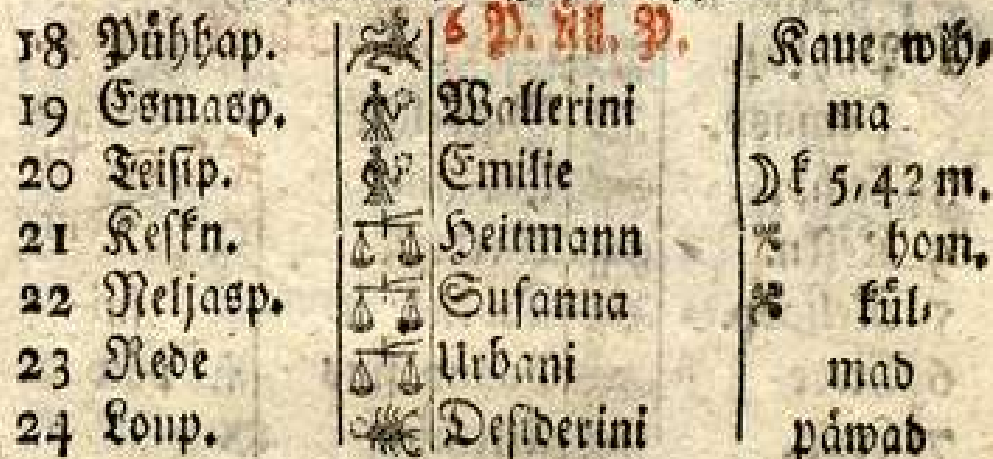 18 Pühhap. 6 P. üll. P. Kaue wih⸗
19 Esmasp. Wallerini ma
20 Teisip. Emilie ☽ k 5,42 m.
21 Keskn. Heitmann hom.
22 Neljasp. Susanna kül⸗
23 Rede Urbani mad
24 Loup. Desiderini päwad